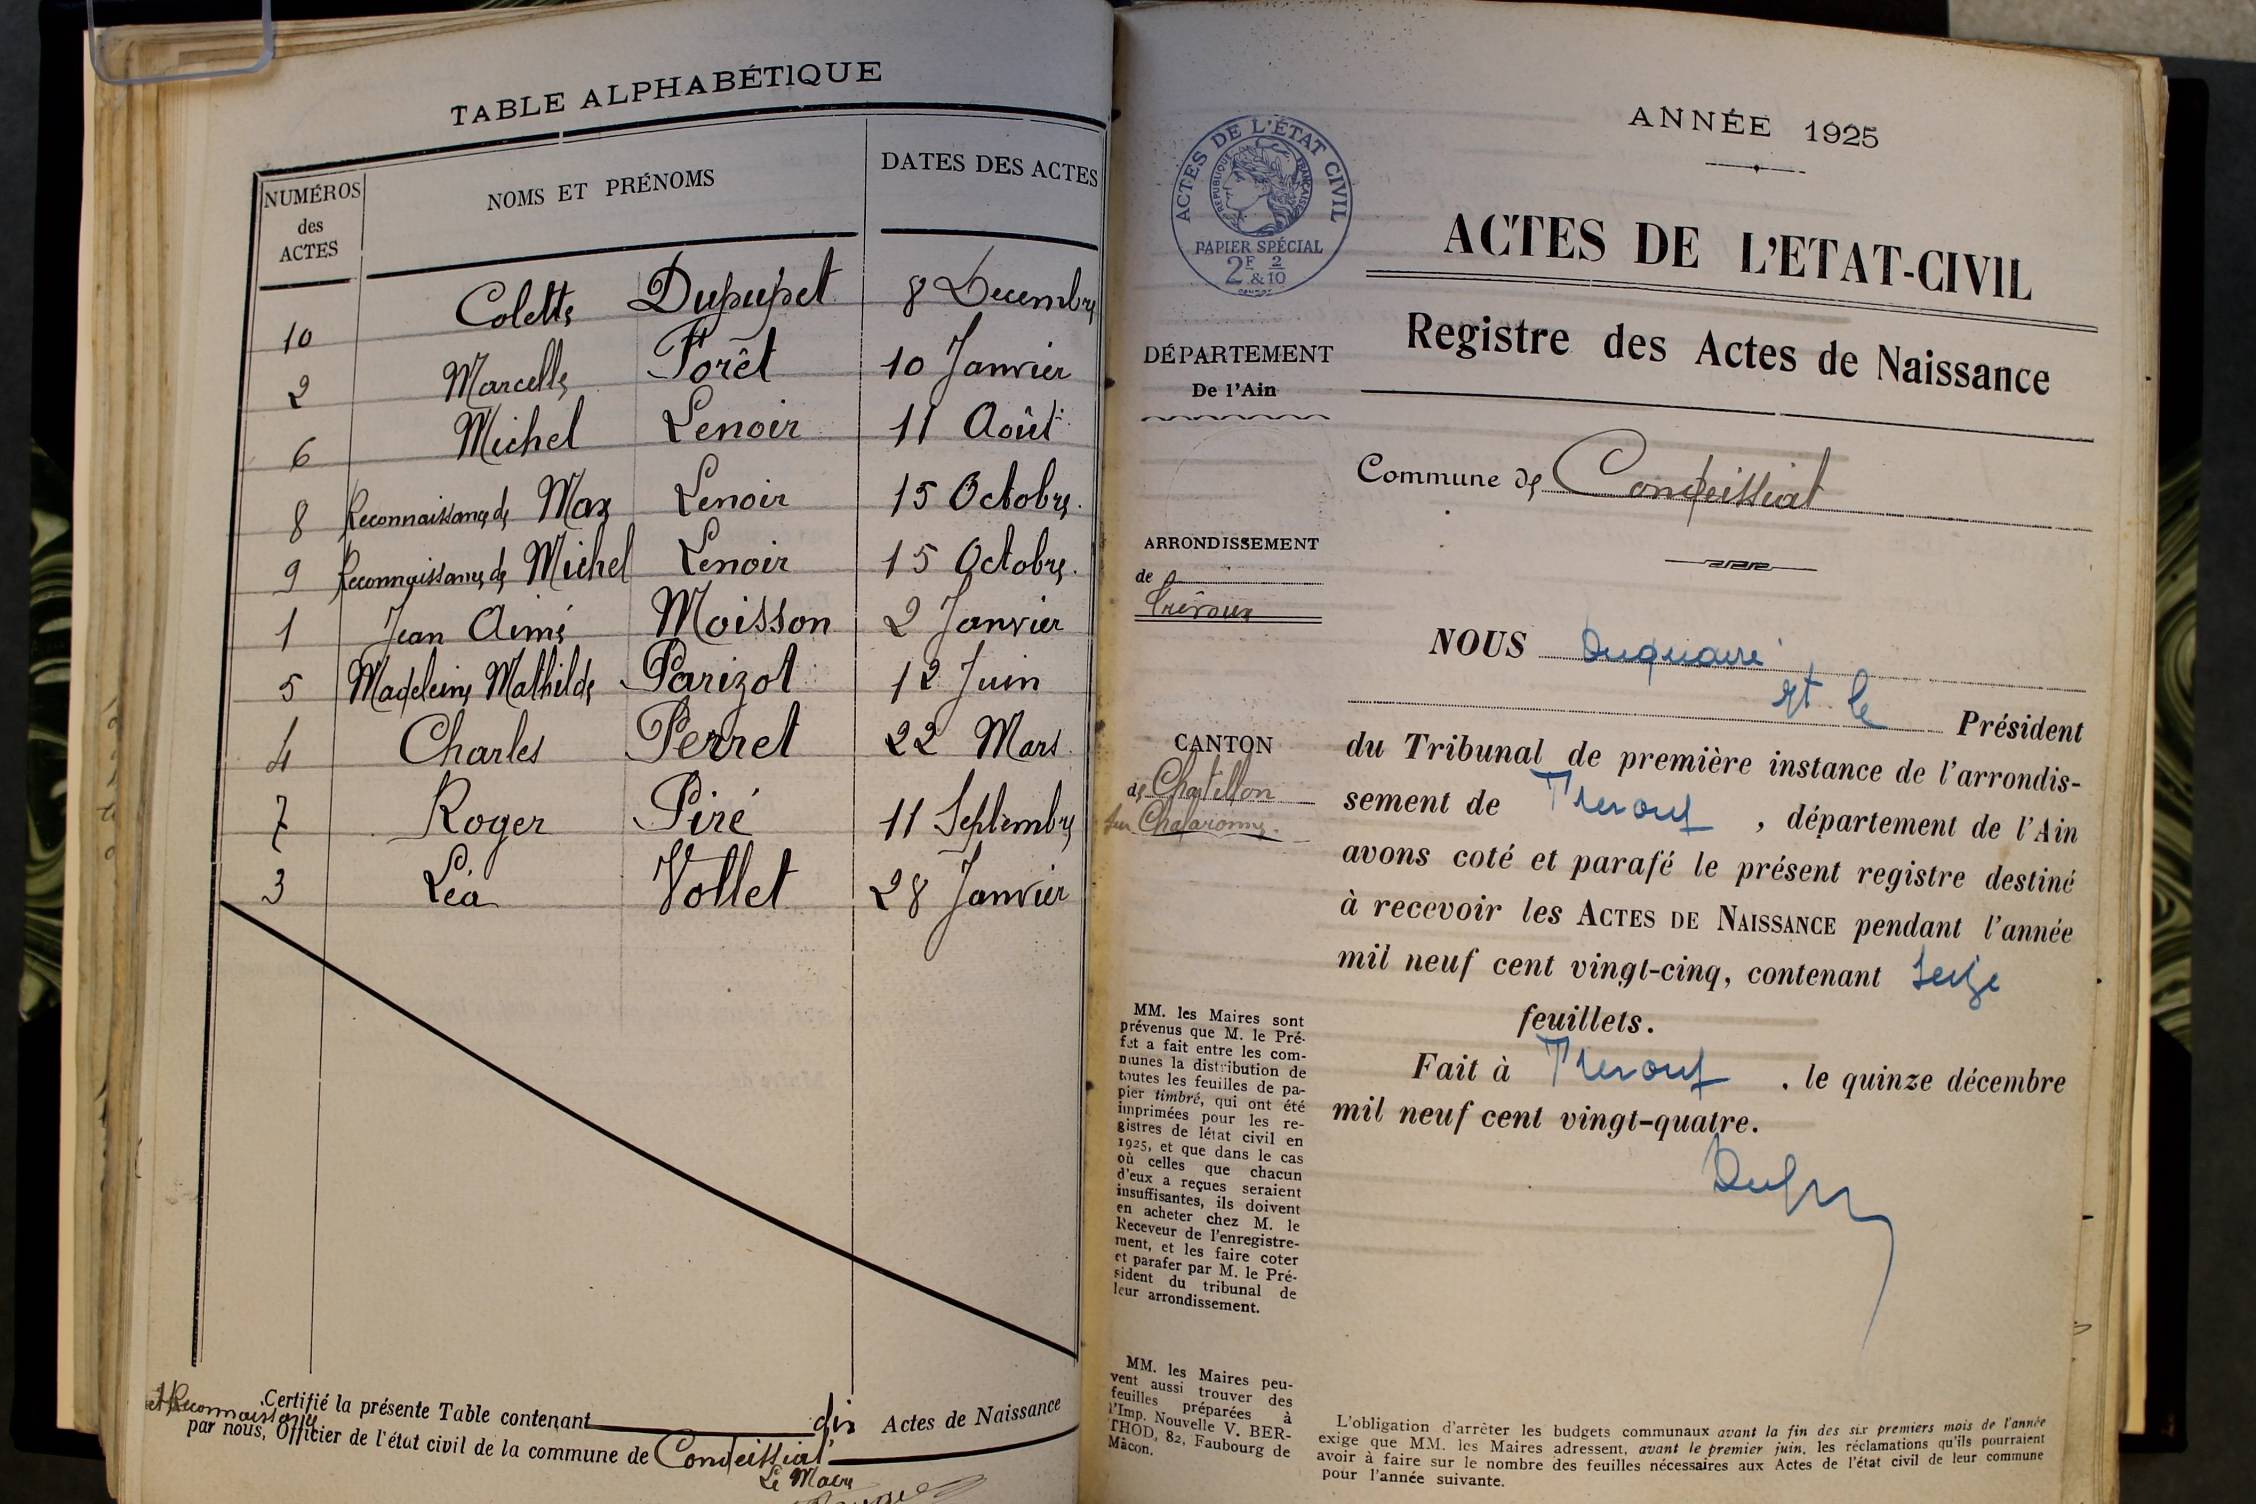 TABLE ALPHABÉTIQUE
NUMÉROS des ACTES NOMS ET PRÉNOMS DATES DES ACTES
10 Colette Dupupet 8 Decembre
2 Marcelle Forêt 10 Janvier
6 Michel Lenoir 11 Août
8 Reconnaissance de Max Lenoir 15 Octobre.
9 Reconnaissance de Michel Lenoir 15 Octobre.
1 Jean Aimé Moisson 2 Janvier
5 Madeleine Mathilde Parizot 12 Juin
4 Charles Perret 22 Mars
7 Roger Piré 11 Septembre
3 Léa Vollet 28 Janvier
et Reconnaissance
Certifié la présente Table contenant dix Actes de Naissance
par nous, Officier de l'état civil de la commune de Condeissiat
Le Maire
ANNÉE 1925
ACTES DE L'ÉTAT CIVIL
RÉPUBLIQUE FRANÇAISE
PAPIER SPÉCIAL
2F & 2/10
ACTES DE L'ETAT-CIVIL
Registre des Actes de Naissance
DÉPARTEMENT
De l'Ain
Commune de Condeissiat
ARRONDISSEMENT
de
Trévoux
NOUS Duquaire
et le Président
du Tribunal de première instance de l'arrondis-
sement de Trevoux, département de l'Ain
avons coté et parafé le présent registre destiné
à recevoir les ACTES DE NAISSANCE pendant l'année
mil neuf cent vingt-cinq, contenant seize
feuillets.
Fait à Trevoux, le quinze décembre
mil neuf cent vingt-quatre.
CANTON
de Chatillon
sur Chalaronne.
MM. les Maires sont
prévenus que M. le Pré-
fet a fait entre les com-
munes la distribution de
toutes les feuilles de pa-
pier timbré, qui ont été
imprimées pour les re-
gistres de létat civil en
1925, et que dans le cas
où celles que chacun
d'eux a reçues seraient
insuffisantes, ils doivent
en acheter chez M. le
Receveur de l'enregistre-
ment, et les faire coter
et parafer par M. le Pré-
sident du tribunal de
leur arrondissement.
MM. les Maires peu-
vent aussi trouver des
feuilles préparées à
l'Imp. Nouvelle V. BER-
THOD, 82, Faubourg de
Mâcon.
L'obligation d'arrêter les budgets communaux avant la fin des six premiers mois de l'année
exige que MM. les Maires adressent, avant le premier juin, les réclamations qu'ils pourraient
avoir à faire sur le nombre des feuilles nécessaires aux Actes de l'état civil de leur commune
pour l'année suivante.